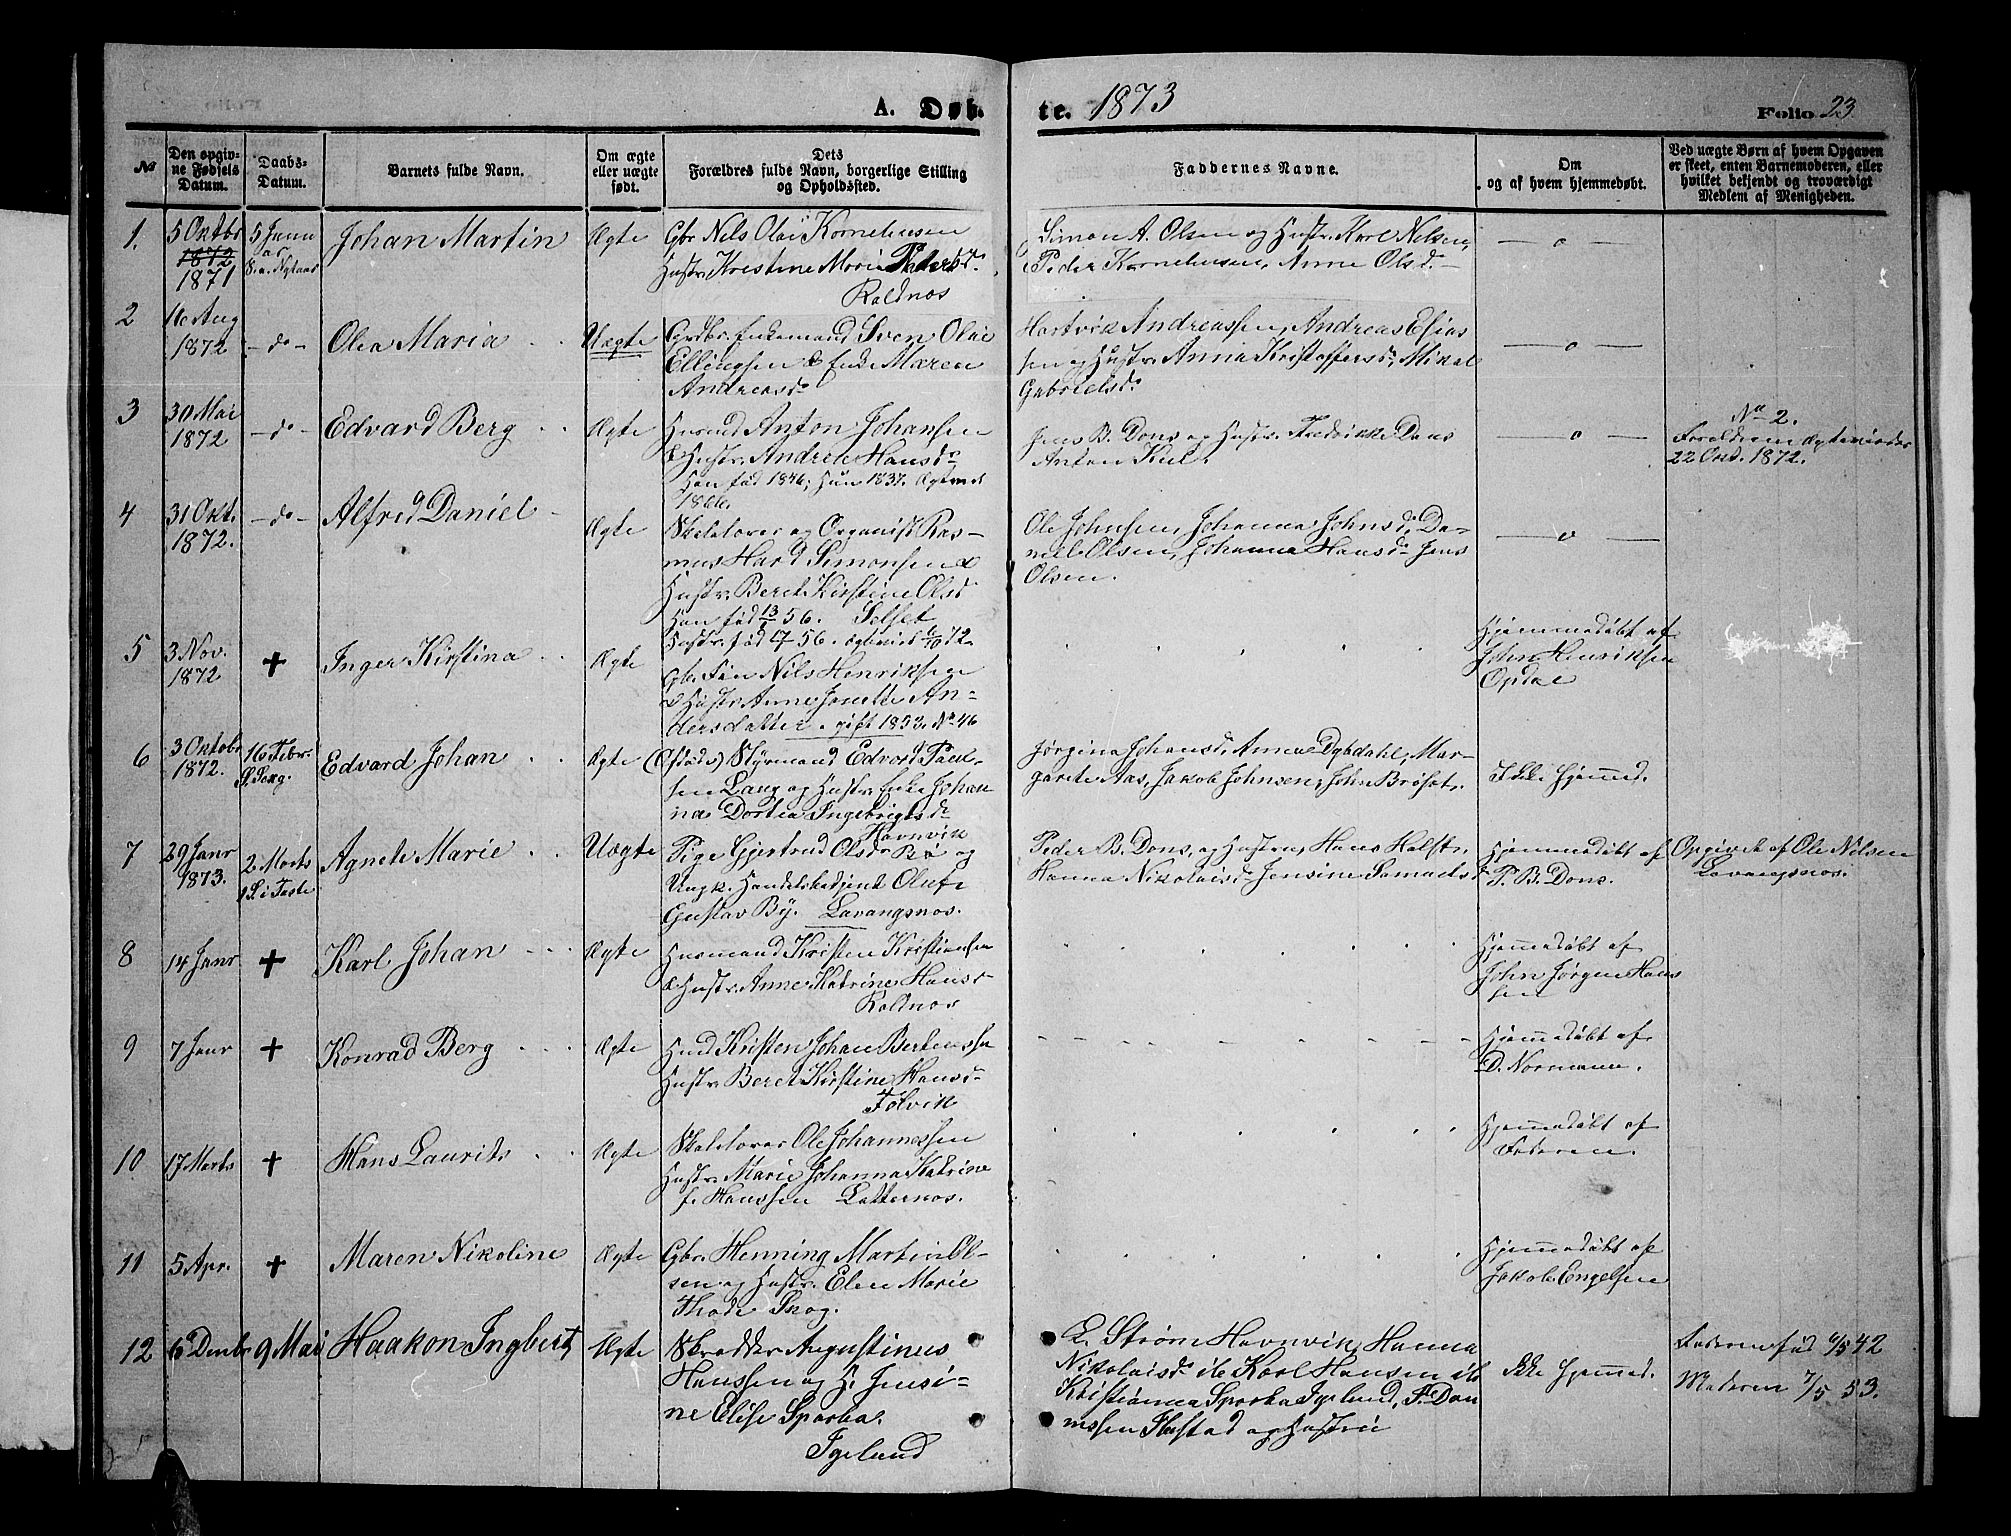 A. Døb-
te. 1873
Folio 23.
No
Den opgiv-
ne Fødsels
Datum.
Daabs-
Datum.
Barnets fulde Navn.
Om ægte
eller uægte
født.
Dets
Forældres fulde Navn, borgerlige Stilling
og Opholdssted.
Faddernes Navne.
Om
og af hvem hjemmedøbt.
Ved uægte Børn af hvem Opgaven
er skeet, enten Barnemoderen, eller
hvilket bekjendt og troværdigt
Medlem af Menigheden.
1.
5 Oktbr
1872
1871
5 Janu
Nytaar
Johan Martin
Ægte
Gbr Nils Olai Kornelius­sen
Hustr. Kristine Marie Pedersd.
Roldnos
Simon A. Olsen og Hustr. Karl Nilsen,
Peder Korneliussen, Anne Olsd.
— o —
2
16 Aug
1872
- do -
Olea Maria
Uægte
Grdbr. Enkemand Sven Olai
Ellingsen & Enke Maren
Andreasd.
Hartvik Andreassen, Andreas Esias
sen og Hustr. Anna Kristoffersd., Mikal
Gabrielsd.
— o —
3
30 Mai
1872
- do -
Edvard Berg
Ægte
Husmd Anton Johansen
& Hustr. Andrea Hansd.
Han fød 1846; Hun 1837. Ægtevied
1866.
Jens B. Dons og Hustr. Fredrikke Dons
Anton Kiil.
— o —
No 2.
Foreldrene ægteviede
22 Okd. 1872.
4
31 Okt.
1872.
- do -
Alfred Daniel
Ægte
Skolelærer og Organist Ras-
mus Hard Simonsen &
Hustr. Beret Kirstine Olsd
Han fød 13/1 56. Selset
Hustr. fød 4/7 56. Ægteviet 6/10 72.
Ole Johnsen, Johanna Johnsd., Da-
niel Olsen, Johanna Hansd. Jens
Olsen.
— o —
5
3 Nov.
1872
+
Inger Kirstina
Ægte
Gbr. Fin Nils Henriksen
& Hustr. Anne Jonette An-
dersdatter. gift 1853. No 46
Hjemmedøbt af
John Henriksen
Opdal
6
3 Oktobr
1872.
16 Febr.
S. Sexag.
Edvard Johan
Ægte
(Afdøde) Styrmand Edvard Paul-
sen Lang og Hustr. Enke Johan
na Dortea Ingebrigtsd.
Havnvik
Jørgina Johansd., Anna Dybdahl, Mar-
garete Aas, Jakob Johnsen, John Brøset.
Ikke Hjemmed.
7
29 Janr
1873.
2 Marts
1 S. i Faste
Agnete Marie
Uægte
Pige Gjertrud Olsdr Bø og
Ungk. Handelsbetjent Oluf
Gustav By. Lavangsnos.
Peder B. Dons, og Hustru, Hans Holst,
Hanna Nikolaisd. Jensine Samuelsd
Hjemmedøbt af
P. B. Dons.
Opgivet af Ole Nilsen
Lavangsnos.
8
14 Janr
+
Karl Johan
Ægte
Husmand Kristen Kristiansen
& Hustr. Anne Katrine Hansd
Roldnos
Hjemmedøbt af
John Jørgen Hans
sen
9
7 Janr
+
Konrad Berg
Ægte
Husmd Kristen Johan Bertensen
Hustr. Beret Kirstine Hansd.
Folvik
Hjemmedøbt af
D. Normann.
10
17 Marts
+
Hans Laurits
Ægte
Skolelærer Ole Johannessen
Hustr. Marie Johanna Katrine
f. Hanssen Latternos.
Hjemmedøbt af
Faderen.
11
5 Apr.
+
Maren Nikoline
Ægte
Gbr. Henning Martin Ol-
sen og Hustr. Elen Marie
Thode Skog.
Hjemmedøbt af
Jakob Engelsen
12
6 Dember
9 Mai
Haakon Ingbert
Ægte
Skrædder Augustinus
Hanssen og H. Jensi-
ne Elise Sparba.
Igelund
L. Strøm Havnvik, Hanna
Nikolaisd. ib Karl Hansen ib
Kristianna Sparba Igelund, P. Dan
Flustad og Hustru
Ikke Hjemmed.
Faderen fød 6/5 42
Moderen 7/5 53.